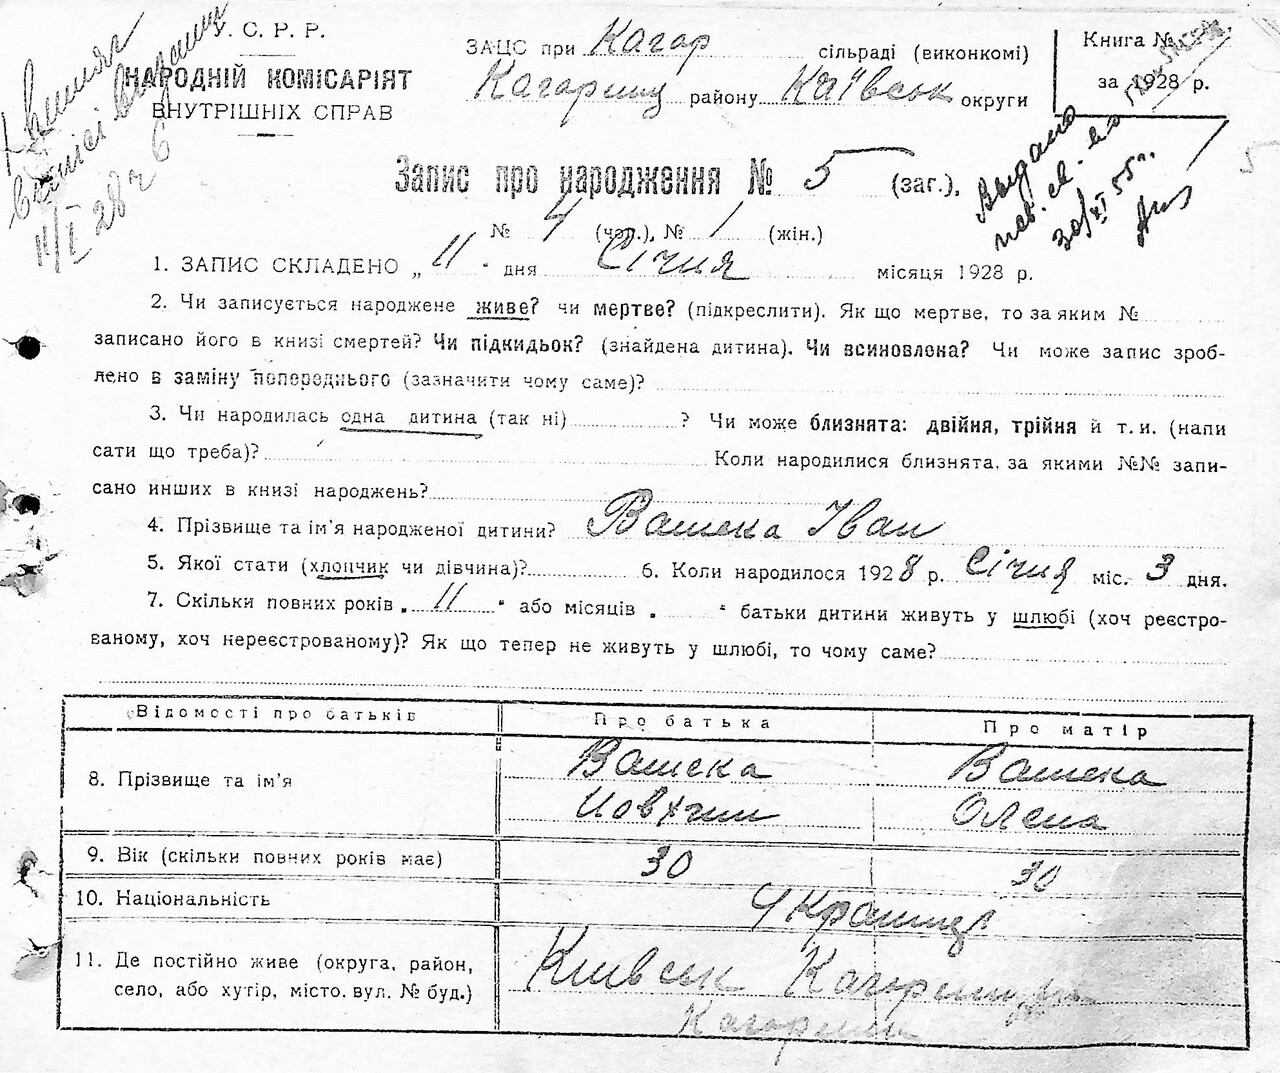 У. С. Р. Р.
НАРОДНІЙ КОМІСАРІЯТ
ВНУТРІШНІХ СПРАВ
ЗАЦС при Кагар сільраді (виконкомі)
Кагарлиц району Київськ округи
Книга №
за 1928 р.
Выдано
пов. св-во
30/XI 55 г.
11/I 28 г
Запис про народження № 5 (заг.),
№ 4 (чол.), № 1 (жін.)
1. ЗАПИС СКЛАДЕНО „ 11 " дня Січня місяця 1928 р.
2. Чи записується народжене живе? чи мертве? (підкреслити). Як що мертве, то за яким №
записано його в книзі смертей? Чи підкидьок? (знайдена дитина). Чи всиновлена? Чи може запис зроб-
лено в заміну попереднього (зазначити чому саме)?
3. Чи народилась одна дитина (так ні) ? Чи може близнята: двійня, трійня й т. и. (напи
сати що треба)? Коли народилися близнята, за якими №№ запи-
сано инших в книзі народжень?
4. Прізвище та ім'я народженої дитини? Вашека Іван
5. Якої стати (хлопчик чи дівчина)? 6. Коли народилося 1928 р. Січня міс. 3 дня.
7. Скільки повних років „ 11 " або місяців „ " батьки дитини живуть у шлюбі (хоч реєстро-
ваному, хоч нереєстрованому)? Як що тепер не живуть у шлюбі, то чому саме?
Відомості про батьків Про батька Про матір
8. Прізвище та ім'я Вашека Вашека
Йовхим Олена
9. Вік (скільки повних років має) 30 30
10. Національність Українці
11. Де постійно живе (округа, район,
село, або хутір, місто, вул. № буд.)
Київськ Кагарлицьк
Кагарлик